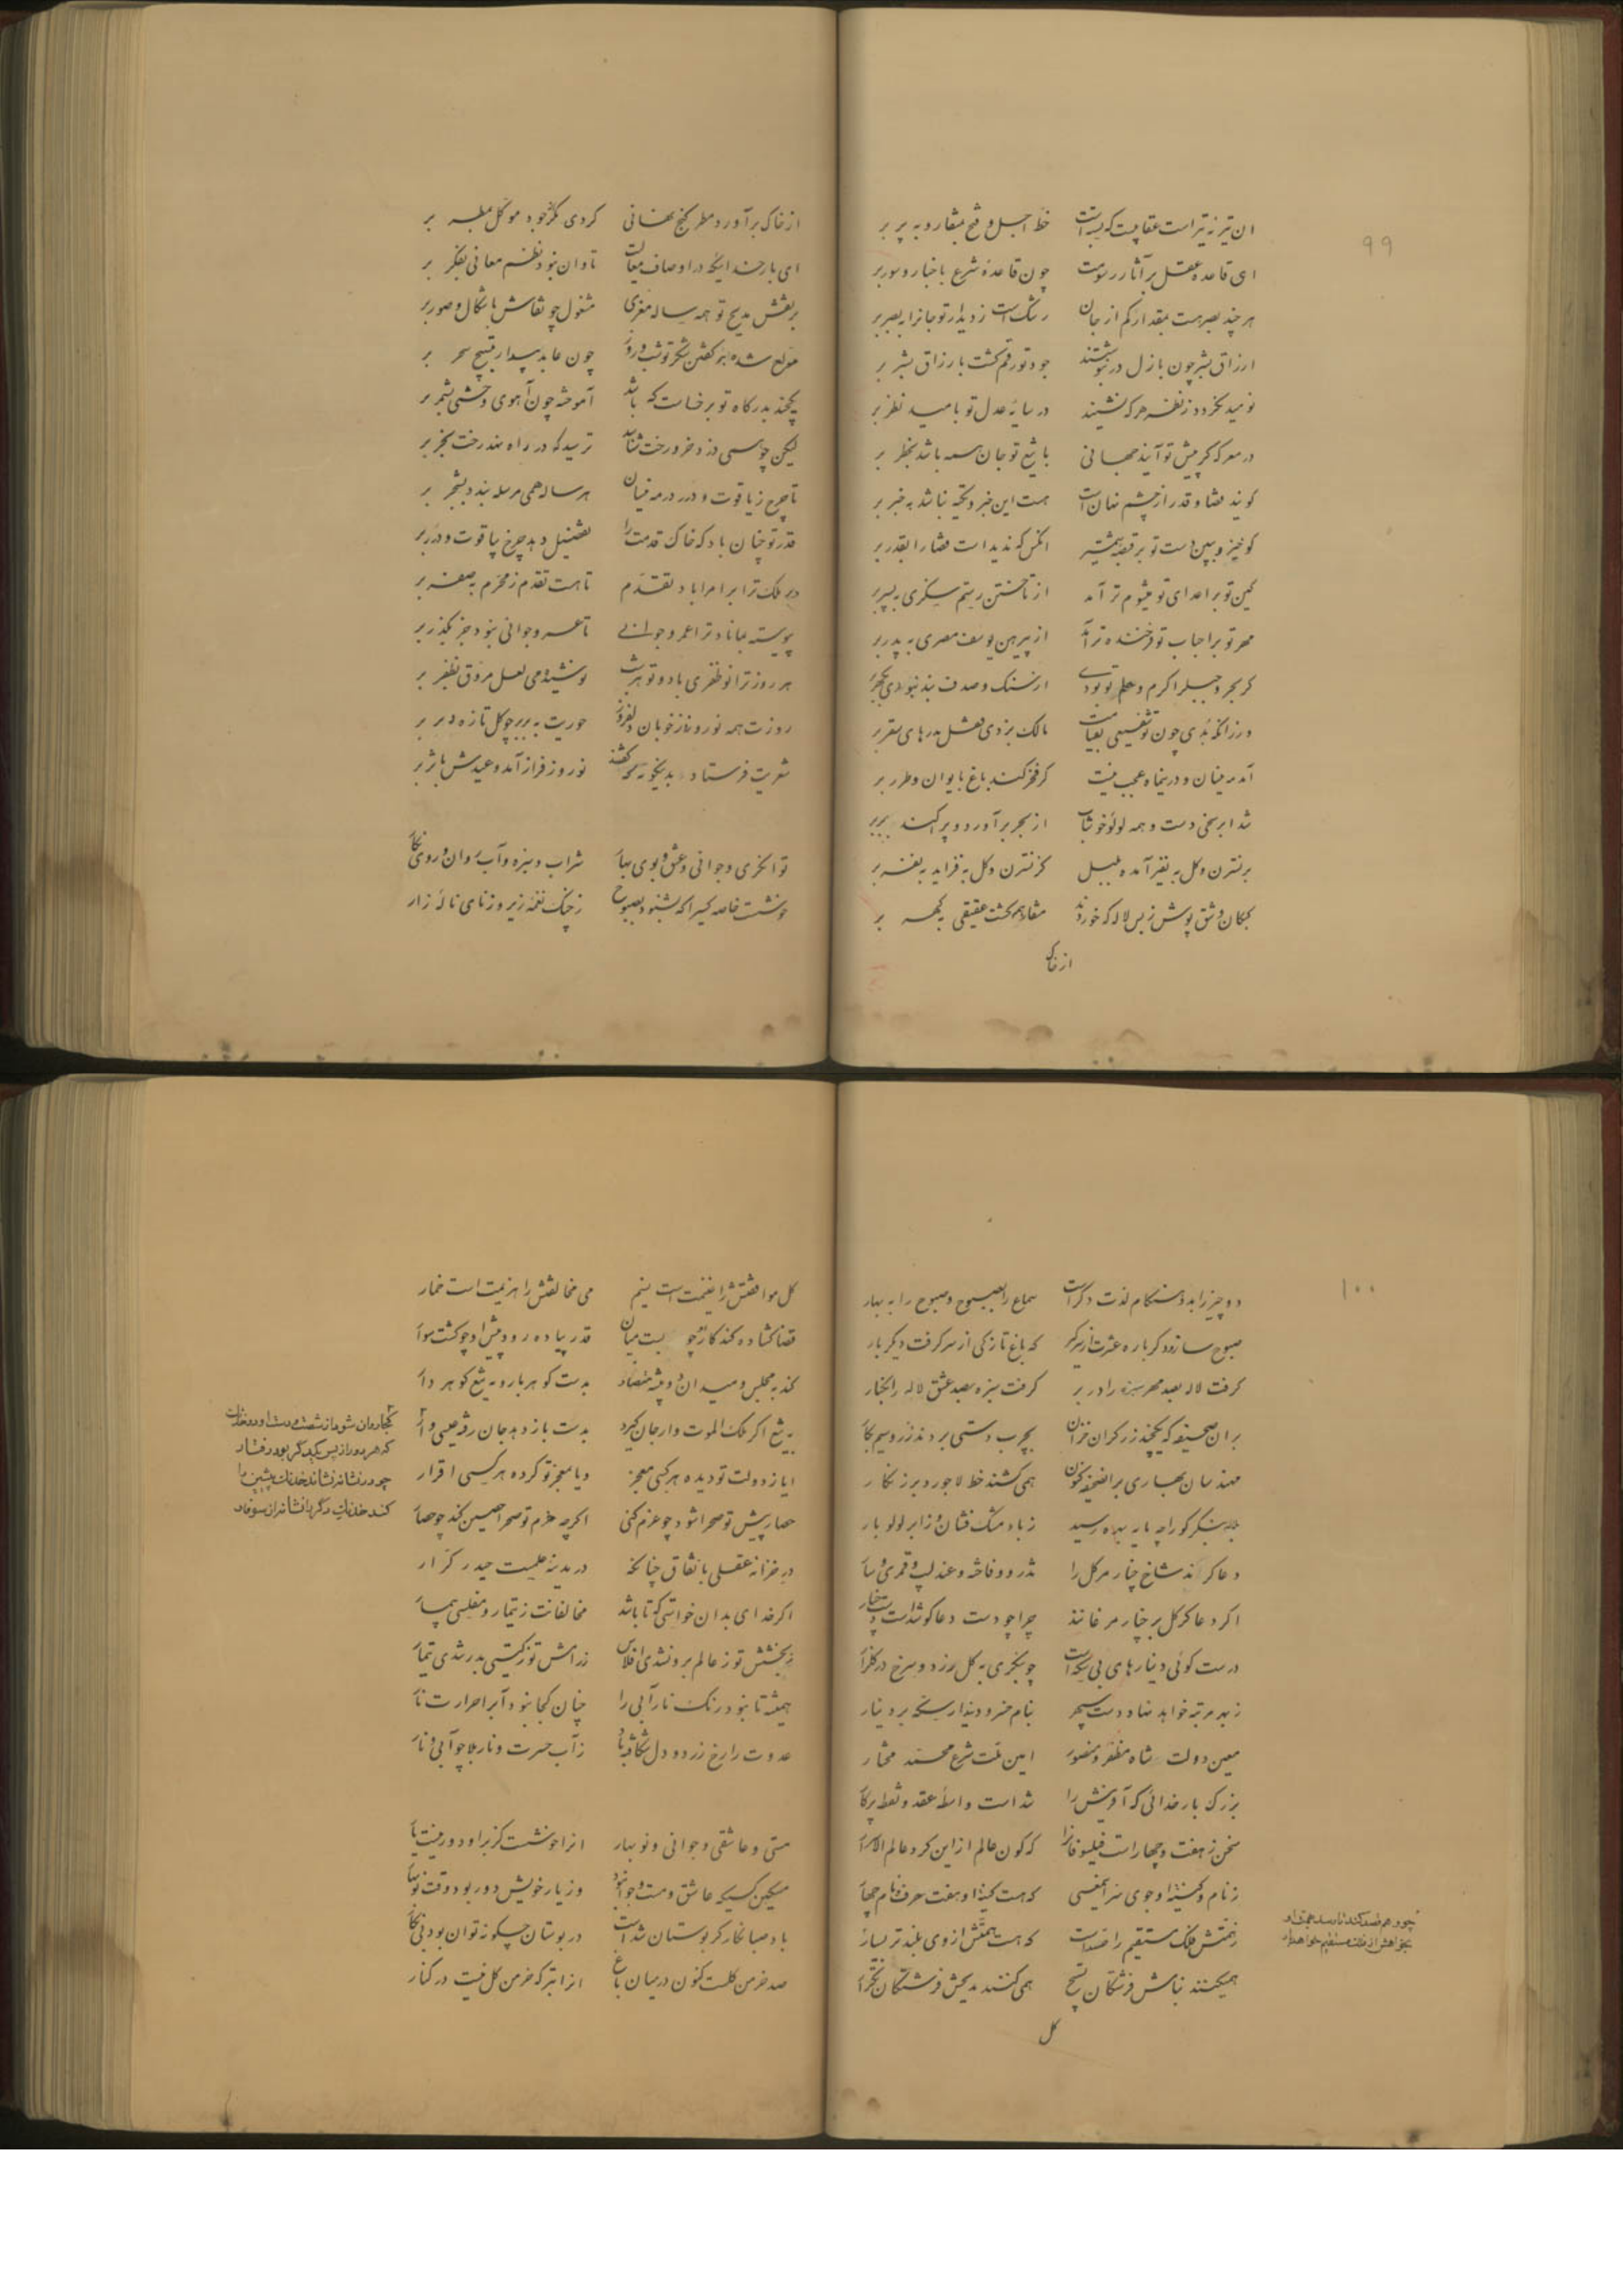 ۹۹
ان تیر نه تیر است عقابیست که پیوست است خط اجل و فتح بمنقار و به پر بر
ای قاعده عقل بر آثار رسومت چون قاعده شرع باخبار و سور بر
هر چند بصر هست بمقدار کم از جان رشک است ز دیدار تو جانرا به بصر بر
ارزاق بشر چون بازل در بنوشتند جود تو رقم گشت بارزاق بشر بر
نومید نگردد ز ظفر هر که نشیند در سایه عدل تو بامید نظر بر
در معرکه گر پیش تو آیند جهانی با تیغ تو جان همه باشد بخطر بر
گویند قضا و قدر از چشم نهان است هست این خبر و تکیه نباشد به خبر بر
گو خیز و ببین دست تو بر قبضه شمشیر انکس که ندید است قضا را بقدر بر
کین تو بر اعدای تو میشوم تر آمد از تاختن رستم سگزی به پسر بر
مهر تو بر احباب تو فرخنده تر آمد از پیرهن یوسف مصری به پدر بر
گر بحر و جبل را کرم و حلم تو بودی از سنگ و صدف بند نبودی بگهر بر
ورزانکه بدی چون تو قسیمی بقیامت مالک بزدی قفل بدرهای سقر بر
آمد مه نیسان و درین ماه عجب نیست گر فخر کند باغ بایوان و طرر بر
شد ابر سخی دست و همه لولو خوشاب از بحر برآورد و پراکند ببر بر
بر نسترن و گل به نفیر آمده بلبل کز نسترن و گل به فزاید به نفر بر
کبکان وشی پوش ز بس لاله که خوردند منقار همه گشت عقیقی بکمر بر
از خاک
از خاک برآورد مطر گنج نهانی کردی مگر خود موکل بمطر بر
ای بار خدائیکه در اوصاف معالیت تاوان نبود نظم معانی بفکر بر
بر نقش مدیح تو همه ساله معزی مشغول چو نقاش باشکال و صور بر
مولع شده بر گفتن شکر تو شب و روز چون عابد بیدار بتسبیح سحر بر
یکچند بدرگاه تو بر خاست که باشد آموخته چون آهوی وحشی بشمر بر
لیکن چو همی دزد خر و رخت شتابد ترسید که در راه نهد رخت بخر بر
تا چرخ ز یاقوت و درر در مه نیسان هر ساله همی مرسله بندد بشجر بر
قدر تو چنان باد که خاک قدمت را تفضیل دهد چرخ بیاقوت و درر بر
در ملک ترا بر امرا باد تقدم تا هست تقدم ز محرم به صفر بر
پیوسته بماناد ترا عمر و جوانی تا عمر و جوانی نبود جز بگذر بر
هر روز ترا نو ظفری باد و تو هر شب نوشیده می لعل مروق بظفر بر
روزت همه نوروز و ز خوبان دلفروز حوریت به بر بر چو گل تازه ببر بر
نوروز فراز آمد و عیدش باثر بر
توانگری و جوانی و عشق و بوی بهار شراب و سبزه و آب روان و روی نگار
خوشست خاصه کسیرا که بشنود بصبوح ز چنگ نغمه زیر و ز نای ناله زار
۱۰۰
دو چیز را بدو هنگام لذت دگر است سماع را بصبوح و صبوح را به بهار
صبوح ساز و دگر باره عشرت از سر گیر که باغ تازگی از سر گرفت دیگر بار
گرفت لاله بصد مهر سبزه را در بر گرفت سبزه بصد عشق لاله را بکنار
بر ان صحیفه که یکچند زرگران خزان بچرب دستی بردند زر و سیم بکار
مهندسان بهاری بر انصحیفه کنون همی کشند خط لاجورد بر زنگار
به بین به بنگر کو را چه پایه بهره رسید ز باد مشک فشان وز ابر لولو بار
دعا کرانند شاخ چنار مر گل را تذرو و فاخته و عندلیب و قمری و سار
اگر دعا گر گل بر چنار مرغانند چرا چو دست دعا گو شد است پنجه چنار
درست گوئی دینارهای بی سکه است چو بنگری به گل زرد و سرخ در گلزار
ز بهر مرتبه خواهد نهاد دست سپهر بنام خسرو دیندار سکه بر دینار
معین دولت شاه مظفر و منصور امین ملت شرع محمد مختار
بزرگ بار خدائی که آفرینش را شد است واسطه عقد و نقطه پرگار
سخن ز هفت و چهار است فیلسوفانرا که کون عالم از این کرد عالم الاسرار
ز نام و کنیت او جوی سر انمعنی که هست کنیت او هفت حرف و نام چهار
ز همتش فلک مستقیم را حسد است که هست همتش از وی بلند تر بسیار
همیکنند نیایش فرشتگان تسبیح همی کنند مدیحش فرشتگان تکرار
چو وهم قصد کند تا رسد بهمت او
بخواهش از فلک مستقیم خواهد بار
گل
گل موافقتش را غنیمت است نسیم می مخالفتش را هزیمت است خمار
قضا گشاده کند کار چو بست میان قدر پیاده رود پیش او چو گشت سوار
کند به مجلس و میدان دو پیشه متضاد بدست گوهر بار و به تیغ گوهر دار
به تیغ اگر ملک الموت وار جان گیرد بدست باز دهد جان رفته عیسی وار
ایا ز دولت تو دیده هر کسی معجز و یا بمعجز تو کرده هر کسی اقرار
حصار پیش تو صحرا شود چو عزم کنی اگر چه حزم تو صحرا حصین کند چو حصار
در خزانه عقلی باتفاق چنانکه در مدینه علمست حیدر کرار
اگر خدای بدان خواستی که تا باشد مخالفانت ز تیمار و مفلسی بیمار
ز بخشش تو ز عالم برون شدی افلاس ز رامش تو ز گیتی بدر شدی تیمار
همیشه تا نبود رنگ نار آبی را چنان کجا نبود آب را حرارت نار
عدوت را رخ زرد و دل شکافته باد ز آب حسرت و نار بلا چو آبی و نار
مستی و عاشقی و جوانی و نو بهار انرا خوشست کز بر او دور نیست یار
مسکین کسیکه عاشق و مست و جوان بود وز یار خویش دور بود وقت نوبهار
باد صبا نگار گر بوستان شد است در بوستان چگونه توان بود بی نگار
صد خرمن گلست کنون در میان باغ انرا بتر که خرمن گل نیست در کنار
که هر دو را ز پس یکدگر بود رفتار
چو در نشانه نشاند خدنک پیشین را